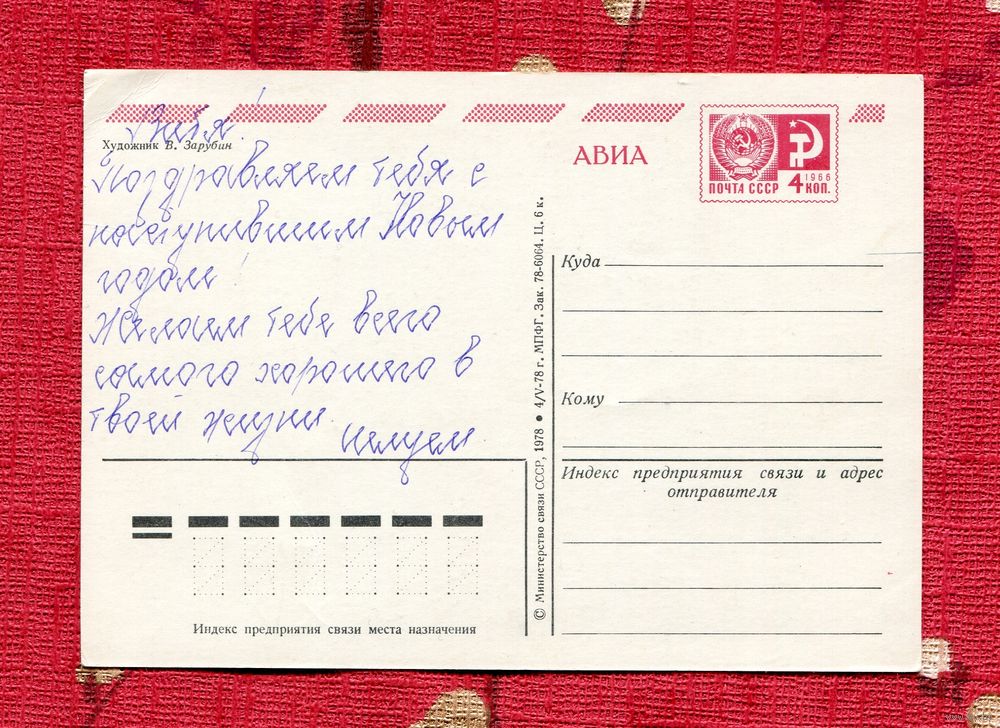 Витя!
Художник В. Зарубин
Поздравляем тебя с
наступившим Новым
годом!
Желаем тебе всего
самого хорошего в
твоей жизни.
Целуем.
АВИА
ПОЧТА СССР
1966
4 КОП.
Куда
Кому
Индекс предприятия связи и адрес
отправителя
© Министерство связи СССР, 1978 ● 4/V-78 г. МПФГ. Зак. 78-6064. Ц. 6 к.
Индекс предприятия связи места назначения